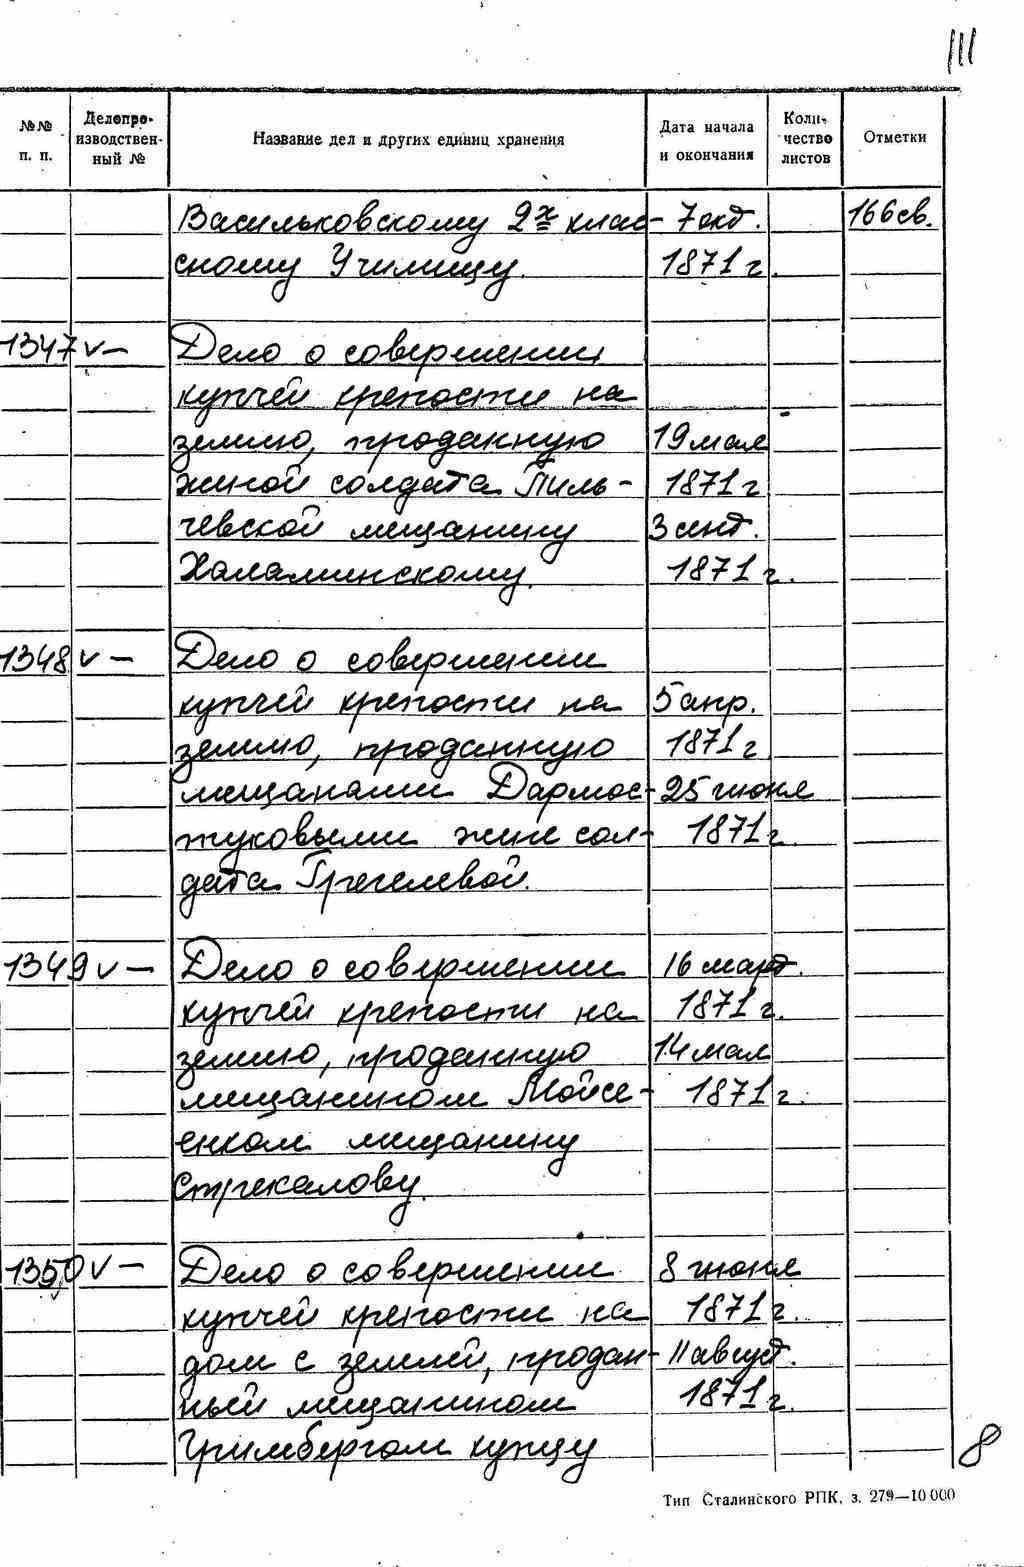 111
№№ п. п.
Делопроизводственный №
Название дел и других единиц хранения
Дата начала и окончания
Количество листов
Отметки
Васильковскому 2х клас- 7 окт. 166 св.
сному Училищу. 1871 г.
1347 v — Дело о совершении
купчей крепости на
землю, проданную 19 мая
женой солдата Пиль- 1871 г
чевской мещанину 3 сент.
Халаминскому. 1871 г.
1348 v — Дело о совершении
купчей крепости на 5 апр.
землю, проданную 1871 г.
мещанами Дармос- 25 июня
туковыми жене сол- 1871 г.
дата Грегелевой.
1349 v — Дело о совершении 16 март.
купчей крепости на 1871 г.
землю, проданную 14 мая
мещанином Мойсе- 1871 г.
енком мещанину
Стрекалову.
1350 v — Дело о совершении 8 июня
купчей крепости на 1871 г.
дом с землей, продан- 11 август.
ный мещанином 1871 г.
Гримбергом купцу
8
Тип Сталинского РПК, з. 279—10 000